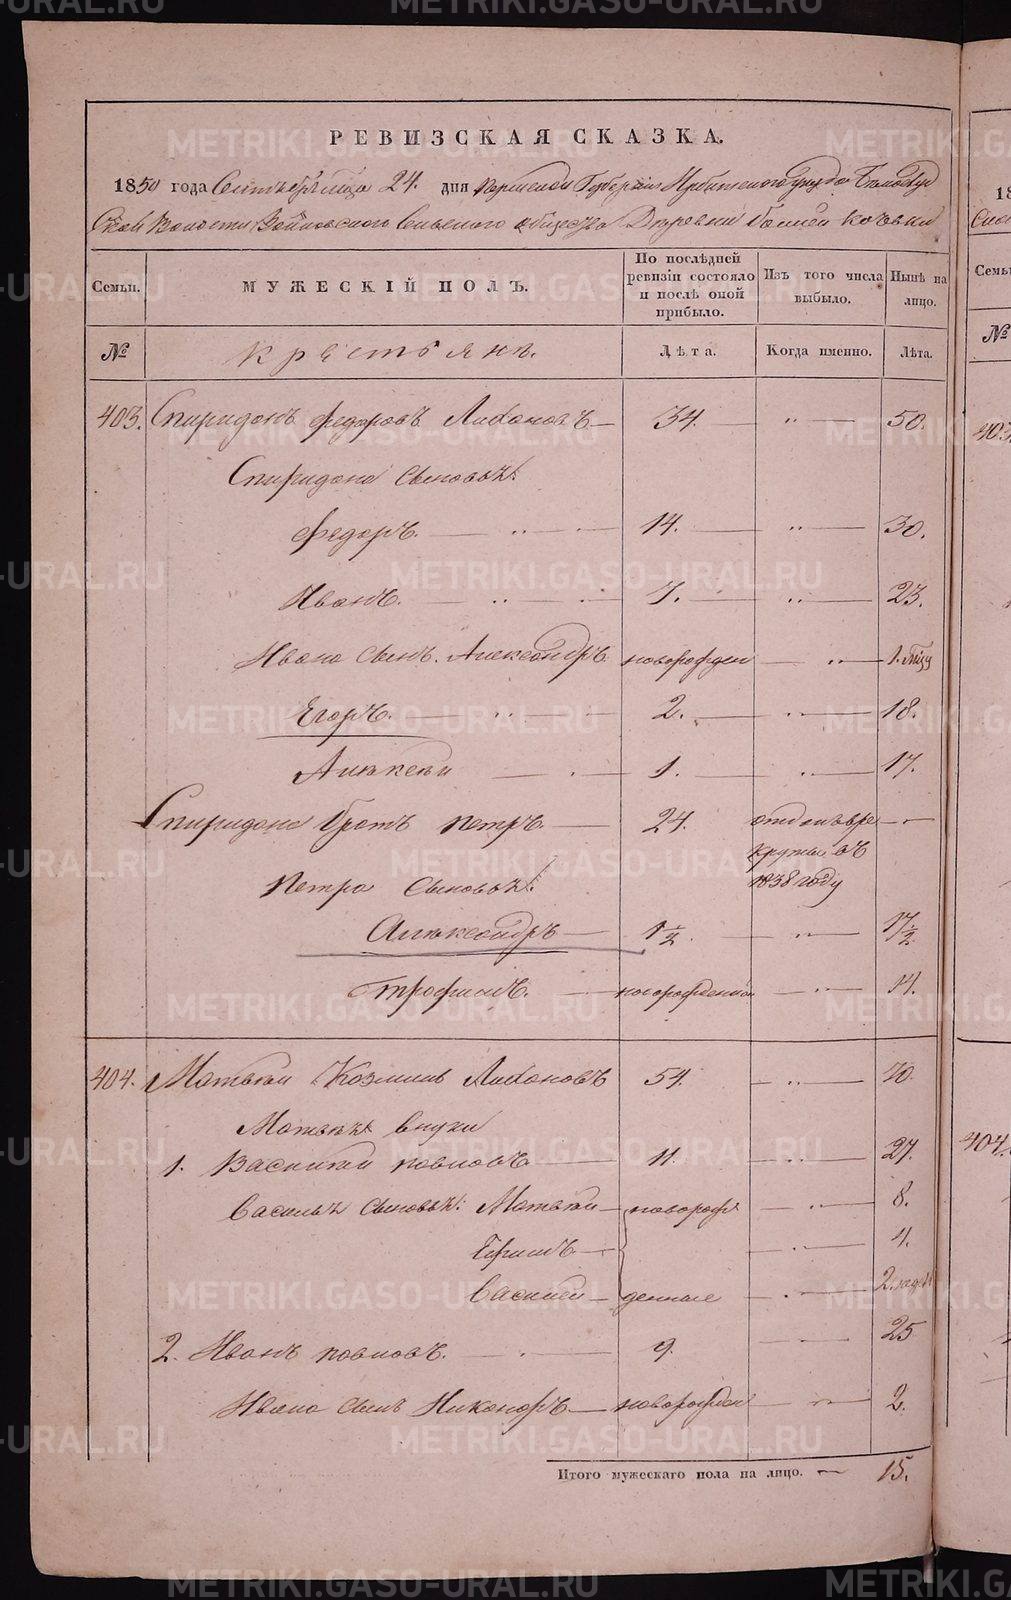 РЕВИЗСКАЯ СКАЗКА.
1850 года Сентября 24. дня Пермской Губернии Ирбитского уезда Белослуд
ской Волости Сельского общества Деревни
Семьи. МУЖЕСКІЙ ПОЛЪ. По послѣдней ревизіи состояло и послѣ оной прибыло. Изъ того числа выбыло. Нынѣ на лицо.
№ Крестьяне. Лѣта. Когда именно. Лѣта.
403. Спиридонъ Федоровъ 34. — „ — 50.
Спиридона сыновья:
Федоръ. — „ — 14. — „ — 30.
Иванъ. — „ — 7. — „ — 23.
Ивана сынъ. Александръ новорожден — „ — 1.
Егоръ. — „ — 2. — „ — 18.
Алексей — „ — 1. — „ — 17.
Спиридона братъ Петръ — 24. отданъ в рекруты въ 1838 году — „ —
Петра сыновья:
Александръ — 1½. — „ — 17½
Трофимъ. — новорожденной — „ — 14.
404. Матвей Козмин 54. — „ — 70.
Матвея внуки
1. Василий Павловъ — 11. — „ — 27.
Василья сыновья: Матвей — новорож — „ — 8.
Ефимъ — — „ — 4.
Василий — денные — „ — 2.
2. Иванъ Павловъ. — „ — 9. — — 25
Ивана сынъ Никаноръ — новорожден — „ — 2.
Итого мужескаго пола на лицо. — 15.
METRIKI.GASO-URAL.RU